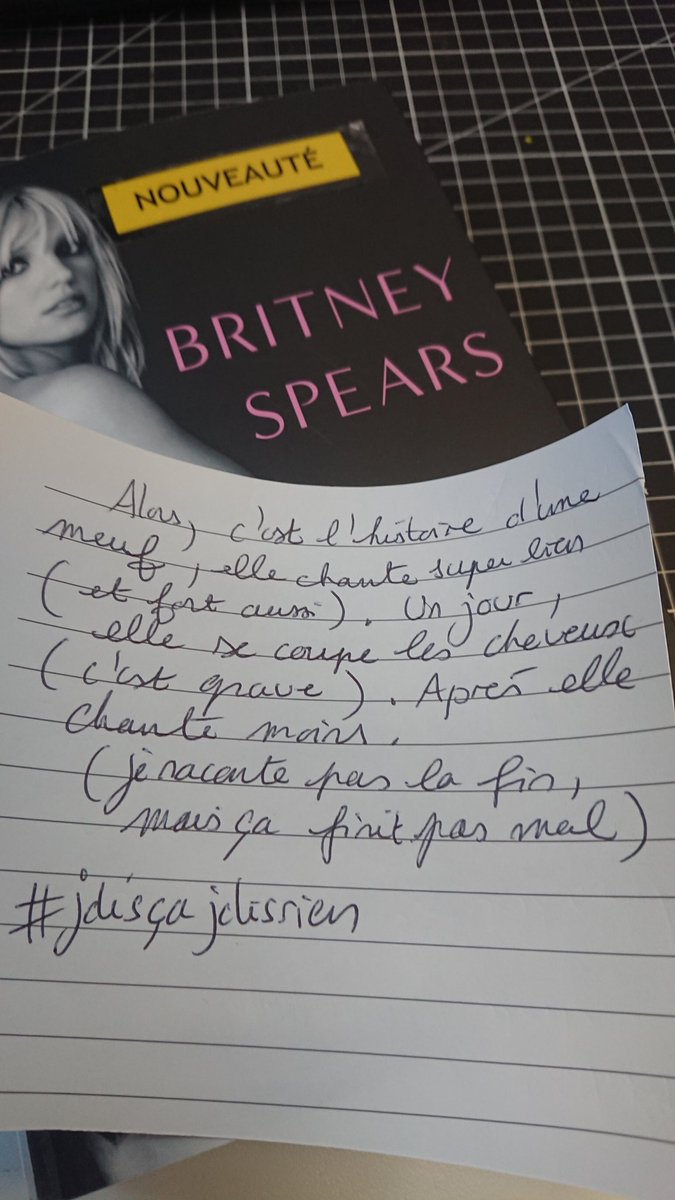 NOUVEAUTÉ
BRITNEY
SPEARS
Alors, c'est l'histoire d'une
meuf, elle chante super bien
(et fort aussi). Un jour,
elle se coupe les cheveux
(c'est grave). Après elle
chante moins.
(je raconte pas la fin,
mais ça finit pas mal)
#jdisçajdisrien